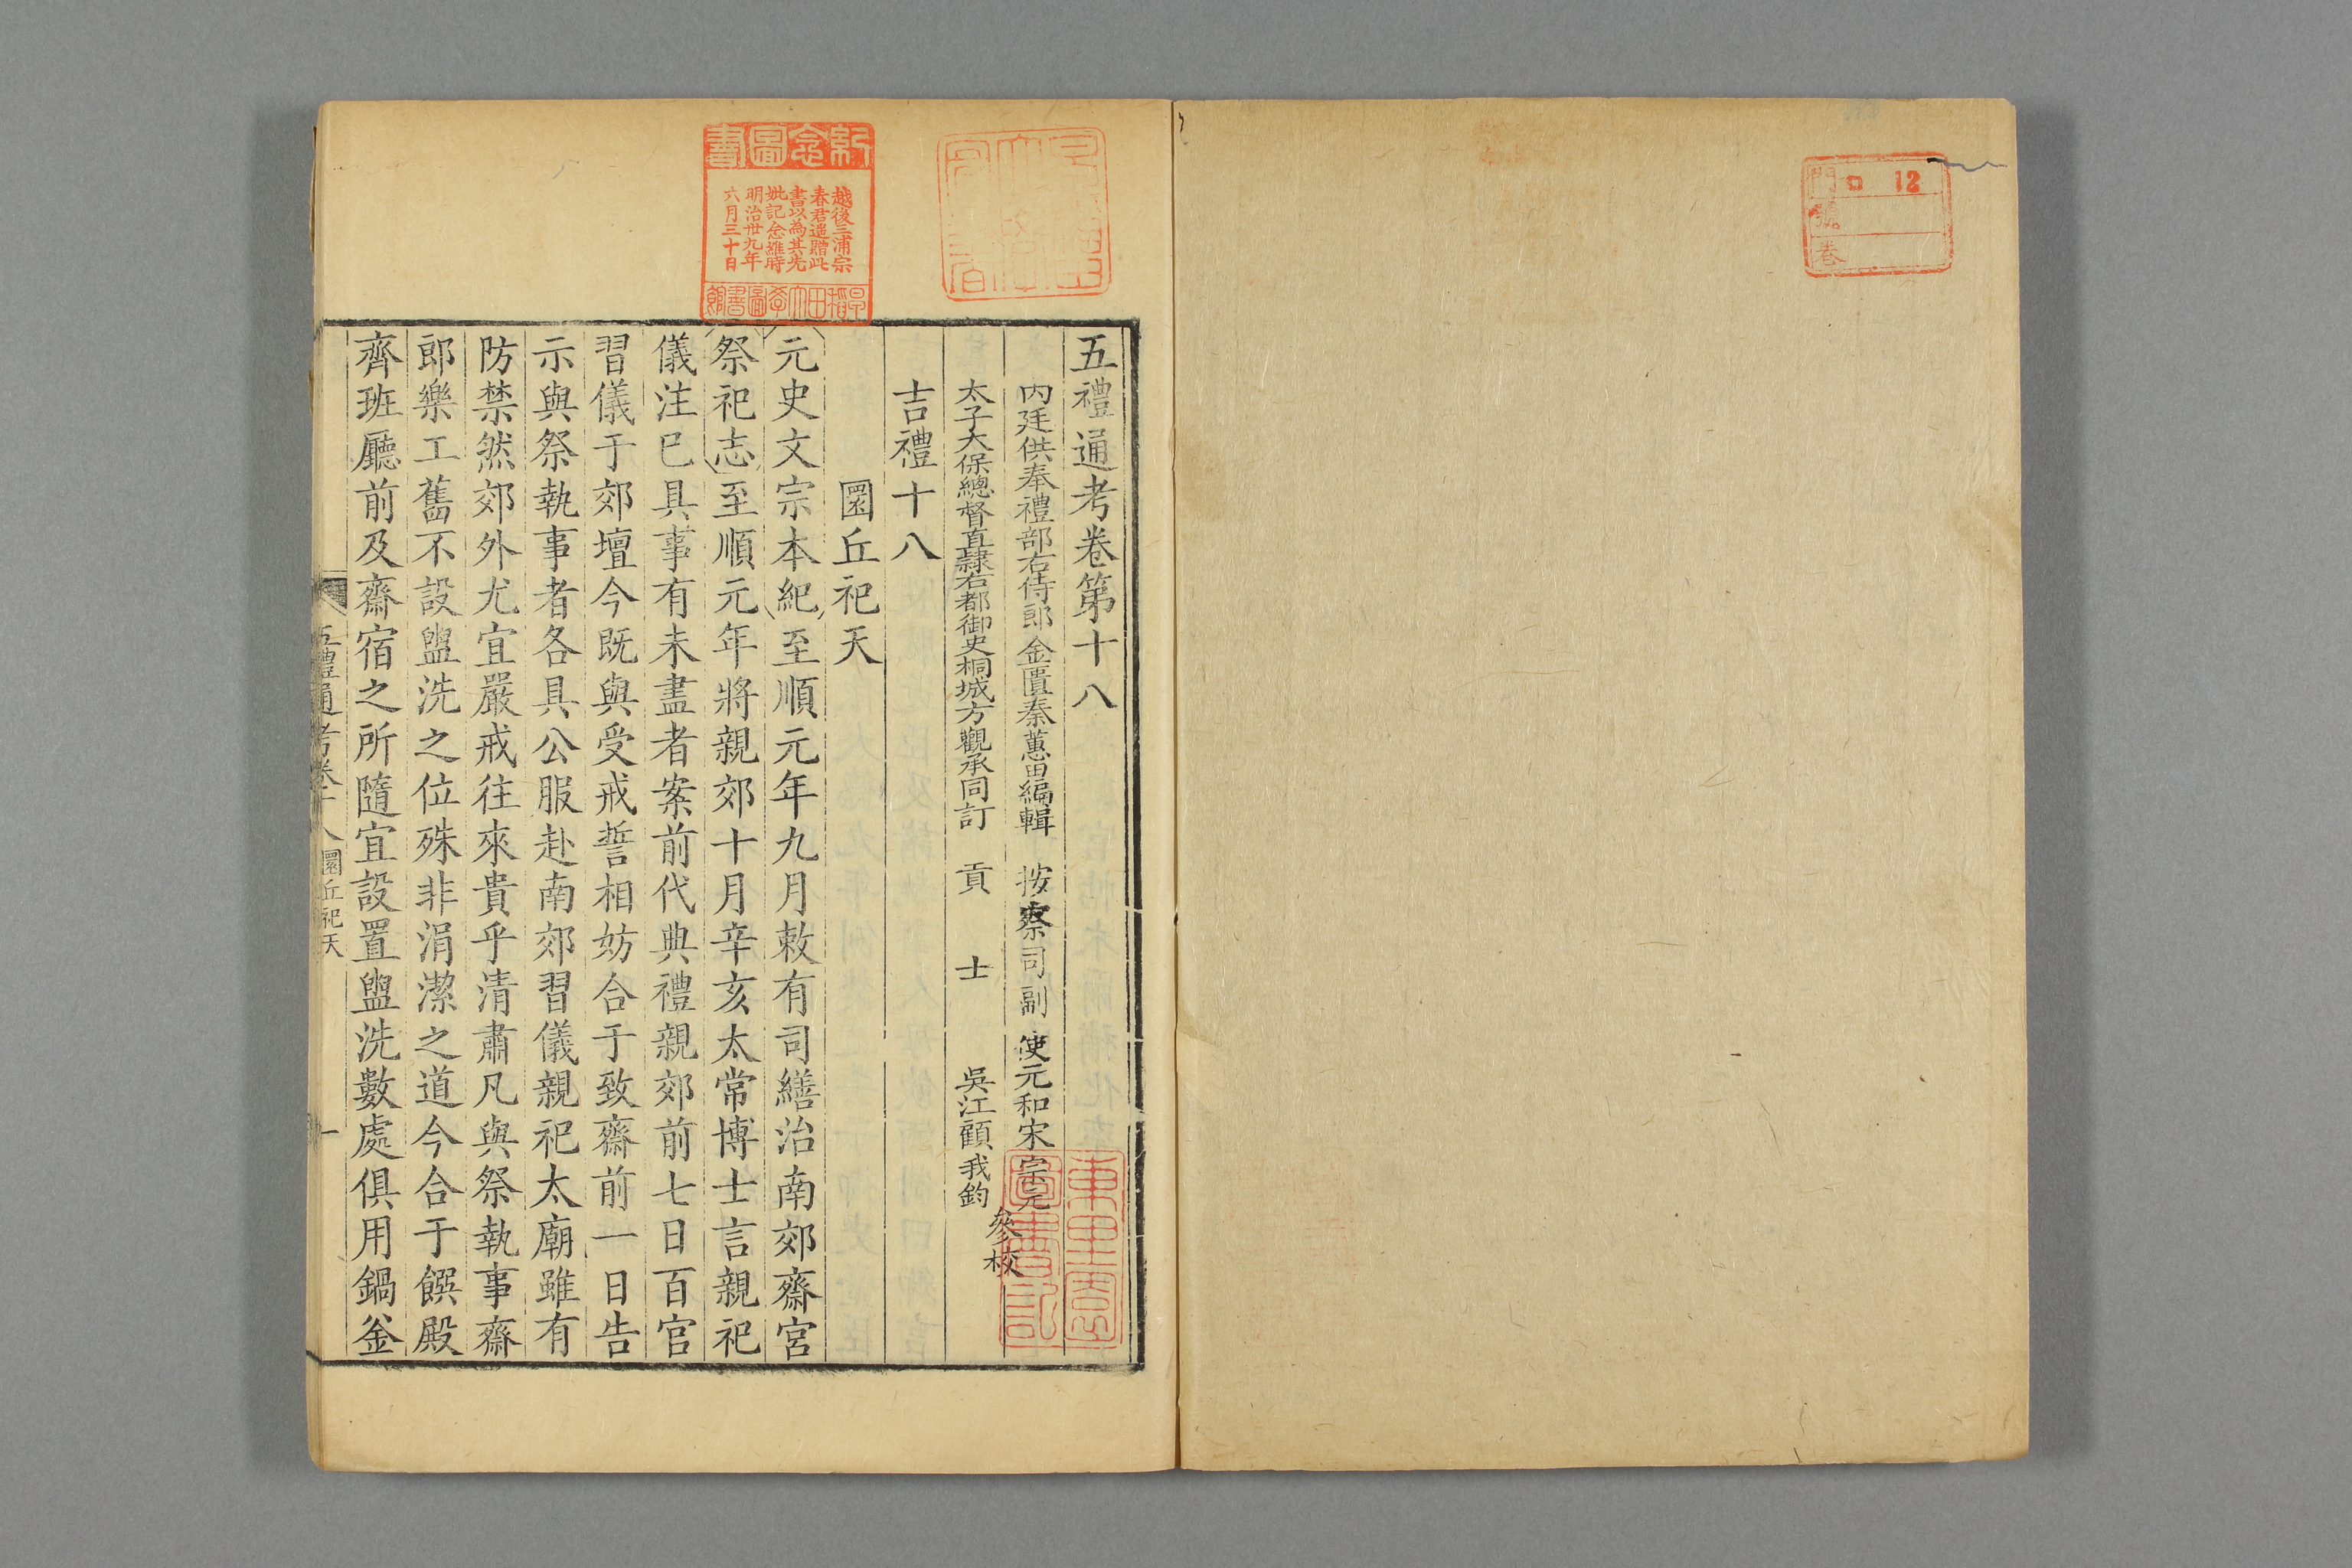 五禮通考卷第十八
內廷供奉禮部右侍郎金匱秦蕙田編輯 按察司副使元和宋宗元
太子太保總督直隸右都御史桐城方觀承同訂 貢士吳江顧我鈞
參校
吉禮十八
圜丘祀天
元史文宗本紀至順元年九月敕有司繕治南郊齋宮
祭祀志至順元年將親郊十月辛亥太常博士言親祀
儀注已具事有未盡者案前代典禮親郊前七日百官
習儀于郊壇今既與受戒誓相妨合于致齋前一日告
示與祭執事者各具公服赴南郊習儀親祀太廟雖有
防禁然郊外尤宜嚴戒往來貴乎清肅凡與祭執事齋
郎樂工舊不設盥洗之位殊非涓潔之道今合于饌殿
齊班廳前及齋宿之所隨宜設置盥洗數處俱用鍋釜
五禮通考卷十八圜丘祀天 一
紀念圖書
越後三浦宗
春君遥贈此
書以為其先
妣記念維時
明治卅九年
六月三十日
早稻田大學圖書館
東里園
圖書記
門 ロ 12
號
卷